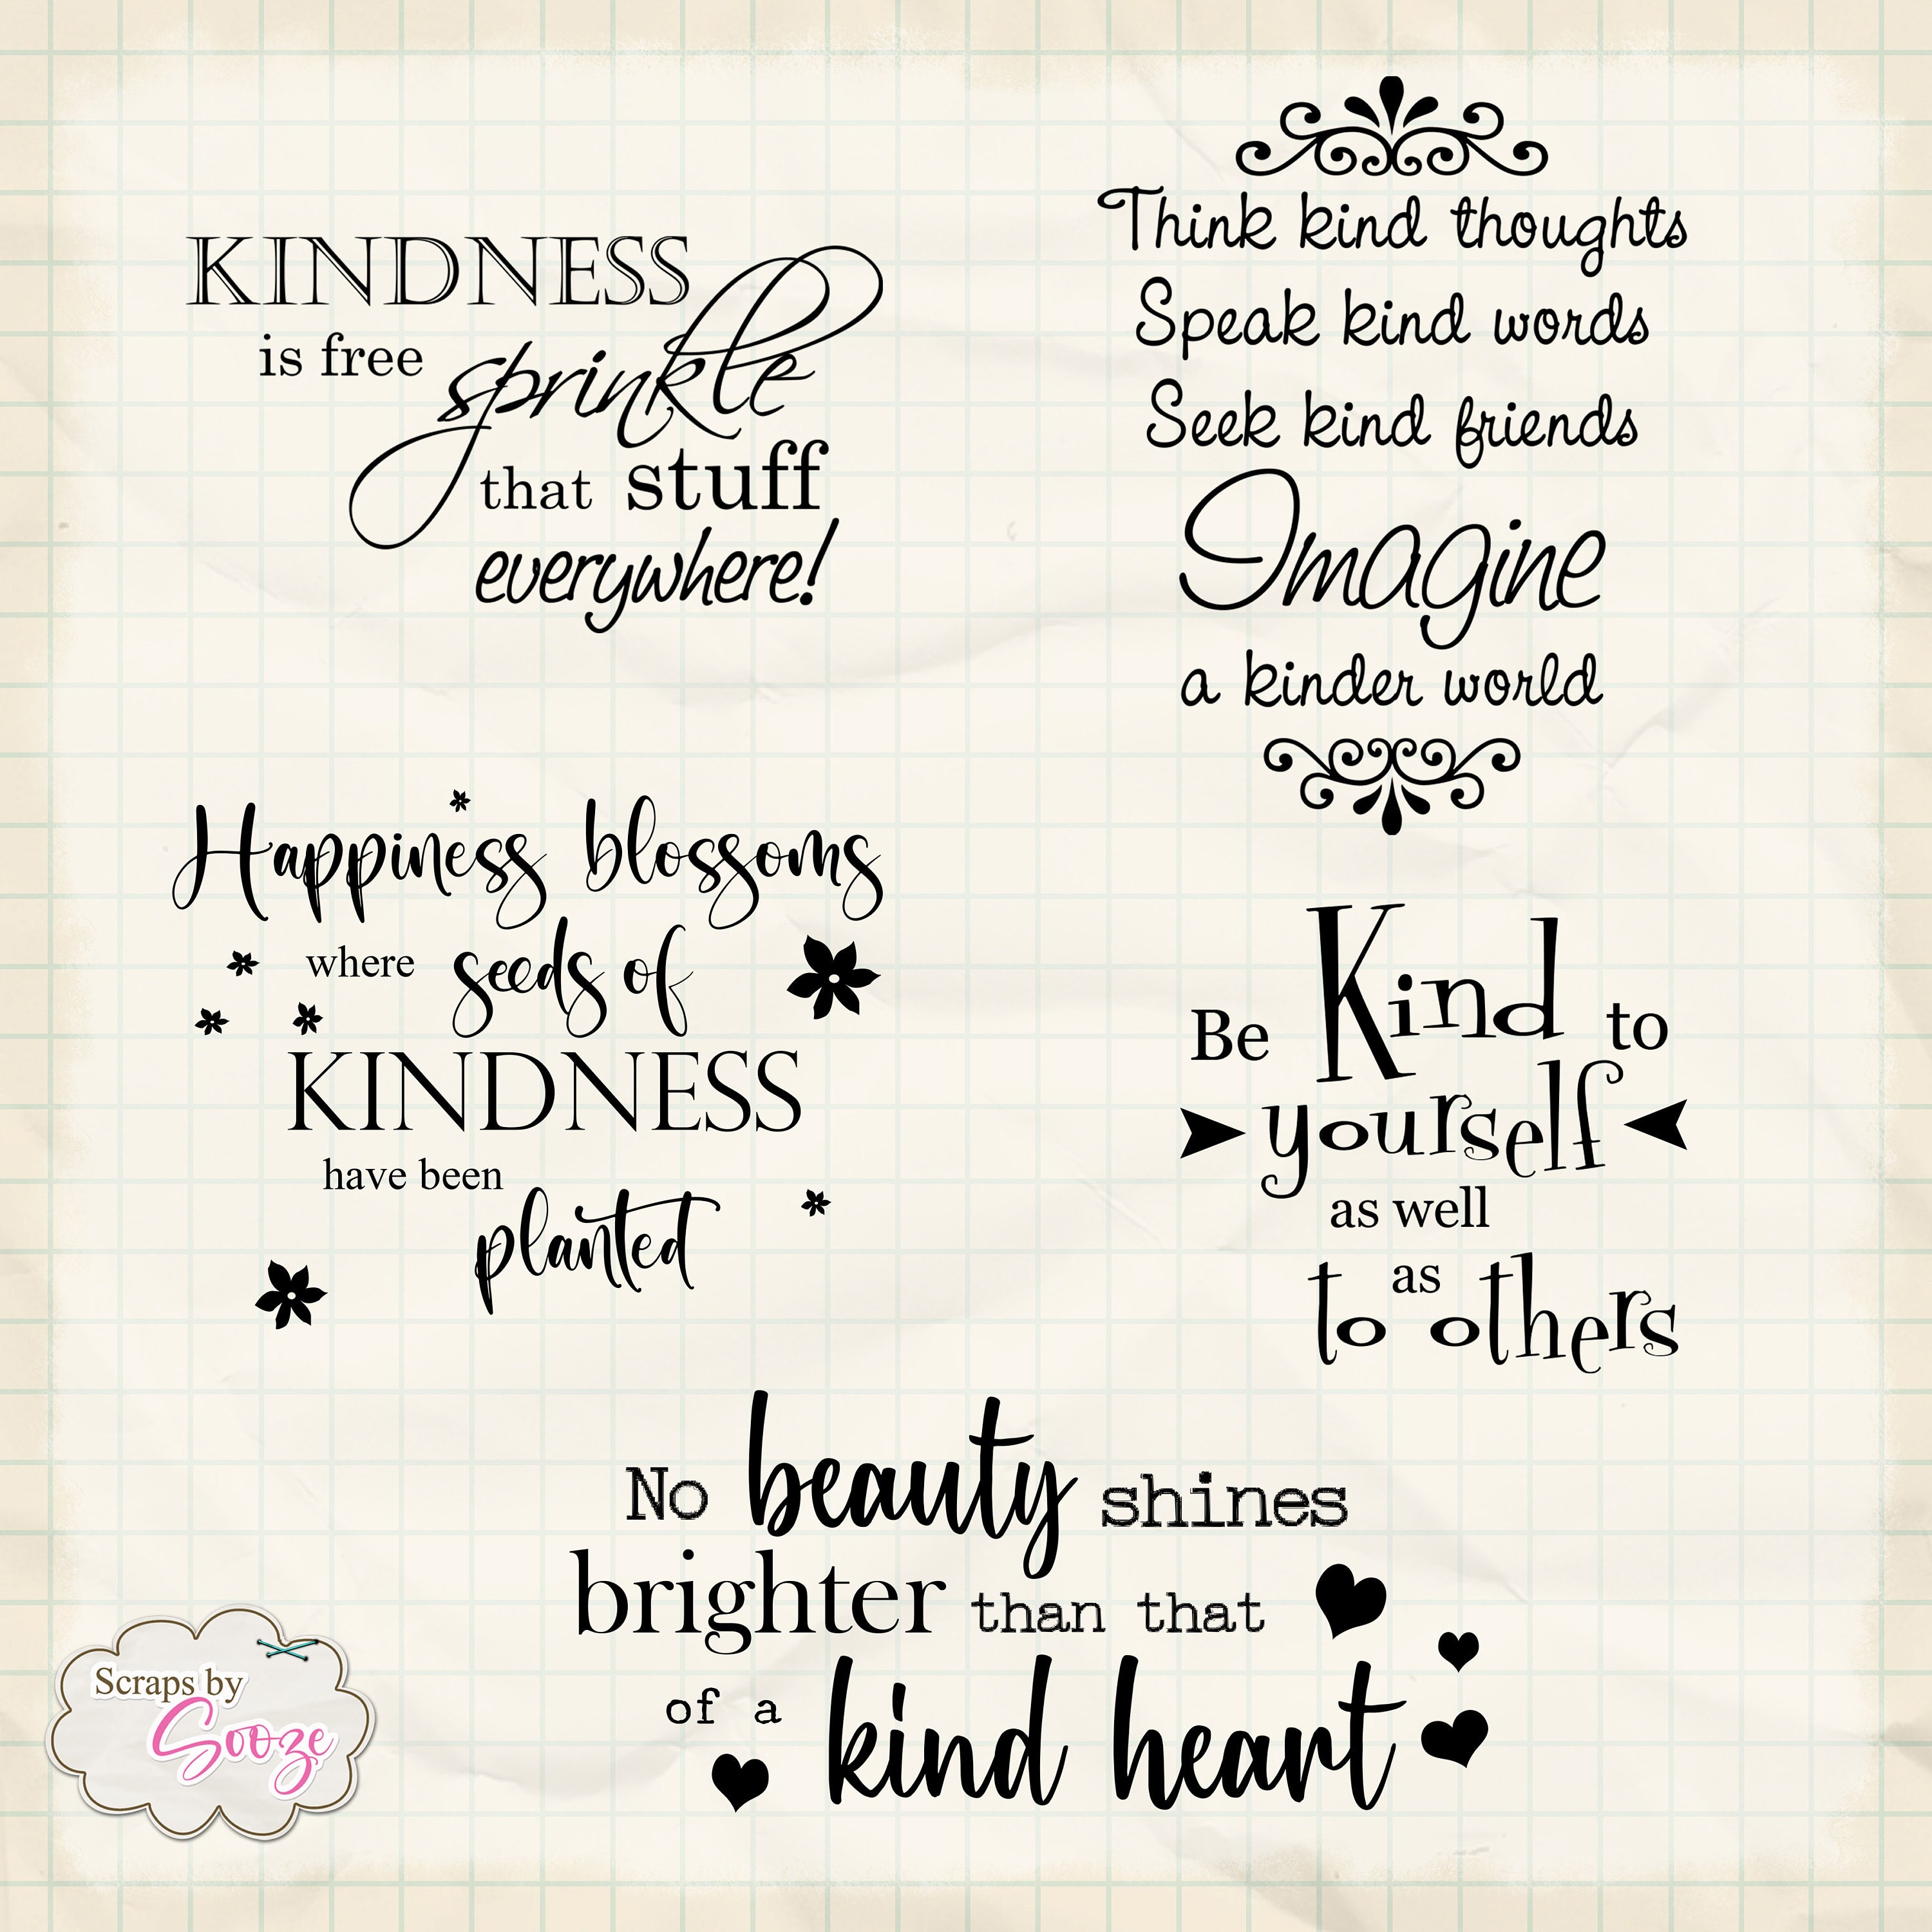 KINDNESS
is free sprinkle
that stuff
everywhere!
Think kind thoughts
Speak kind words
Seek kind friends
Imagine
a kinder world
Happiness blossoms
where seeds of
KINDNESS
have been
planted
Be Kind to
yourself
as well
as
to others
No beauty shines
brighter than that
of a kind heart
Scraps by
Sooze